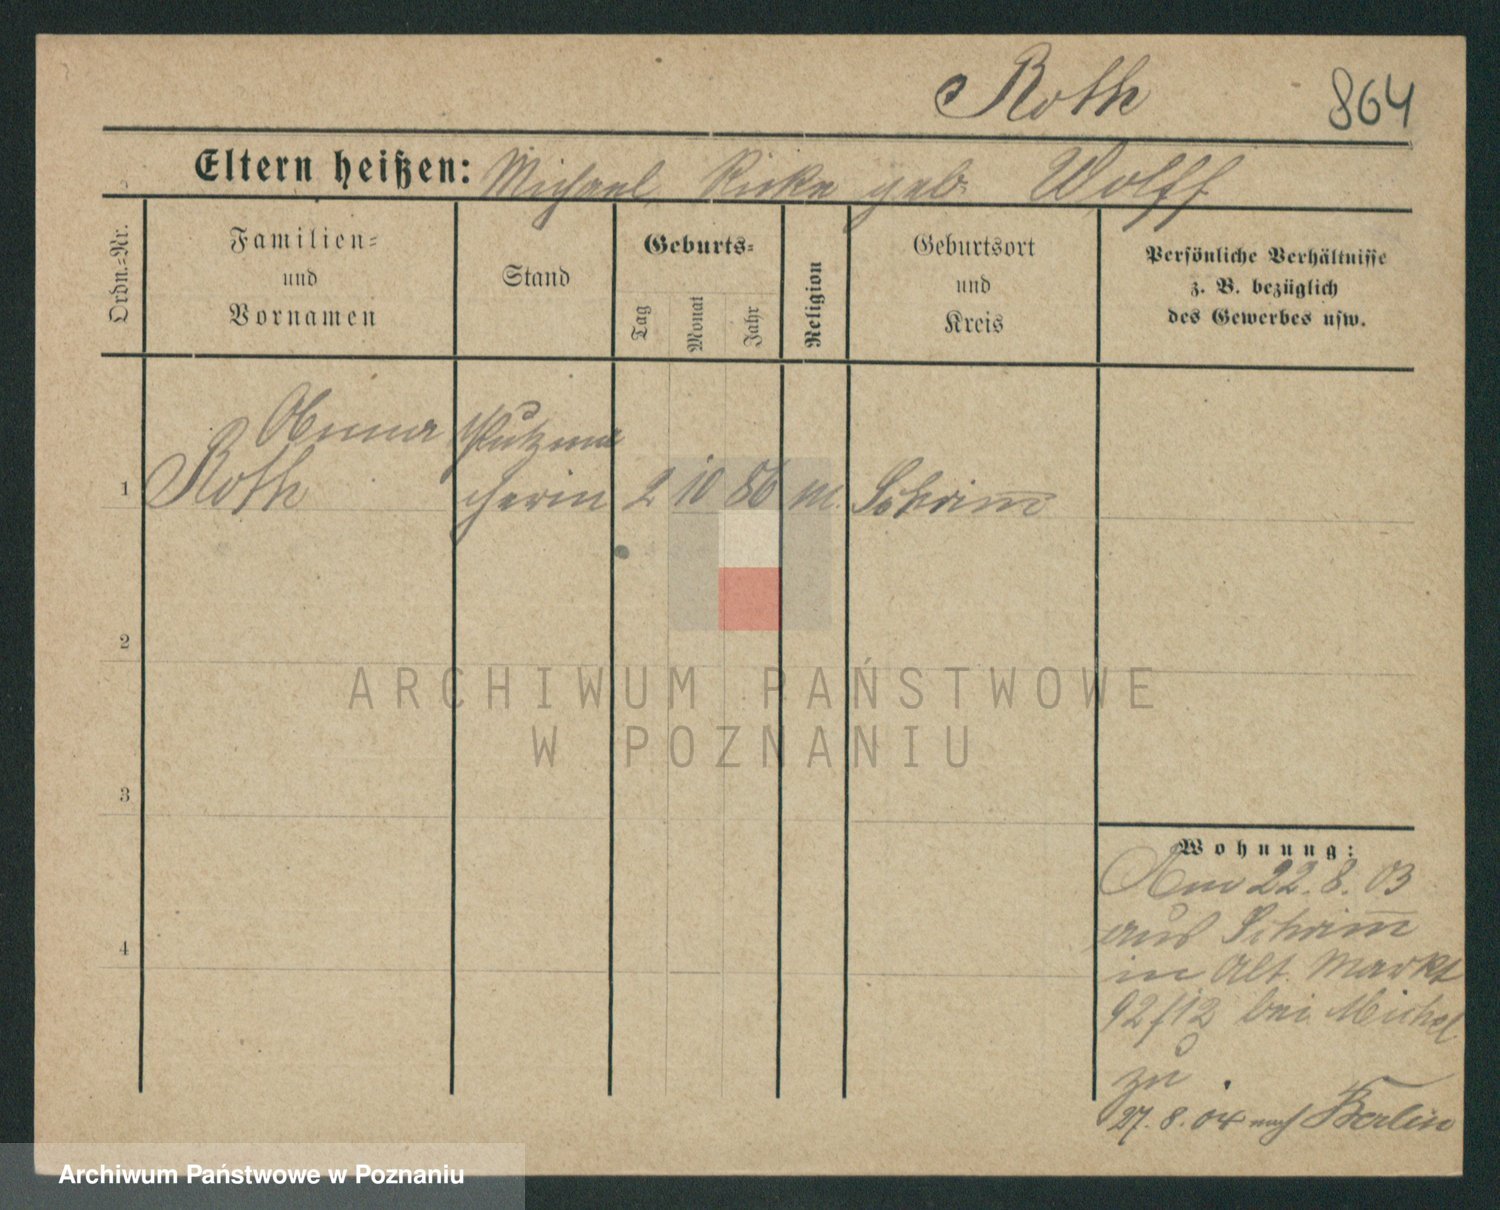 Roth 864
Eltern heißen: Michael, Ricke geb. Wolff
Ordn.-Nr.
Familien-
und
Vornamen
Stand
Geburts-
Tag
Monat
Jahr
Religion
Geburtsort
und
Kreis
Persönliche Verhältnisse
z. B. bezüglich
des Gewerbes usw.
Putzma
1 Roth cherin 2 10 86 m. Schrim̅
2
3
4
Wohnung:
Am 22.8.03
aus Schrim̅
in Alt. Markt
92/12 bei Michel
zu.
27.8.04 nach Berlin
ARCHIWUM PAŃSTWOWE
W POZNANIU
Archiwum Państwowe w Poznaniu